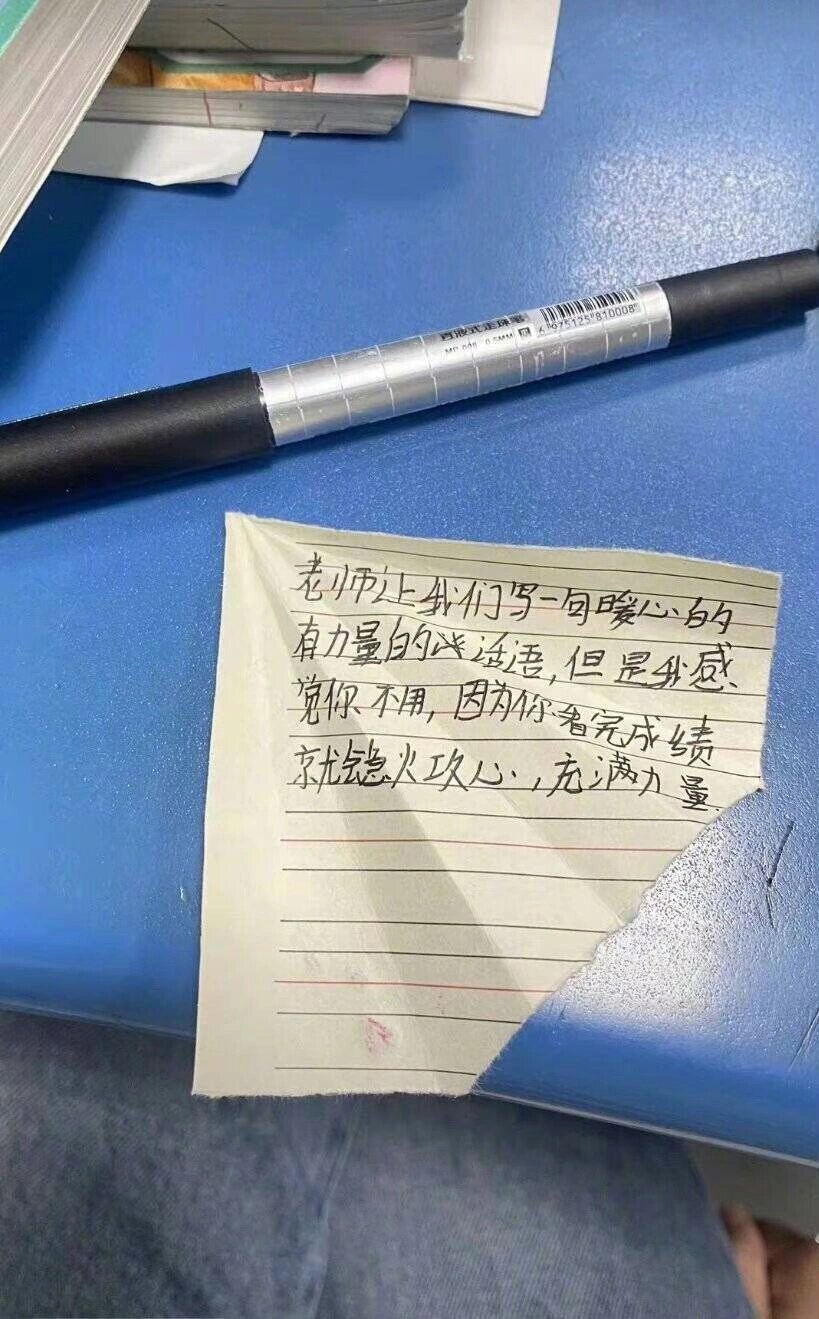 直液式走珠笔
0.5MM
6 975125 810008
老师让我们写一句暖心的
有力量的话语,但是我感
觉你不用,因为你看完成绩
就会急火攻心,充满力量.